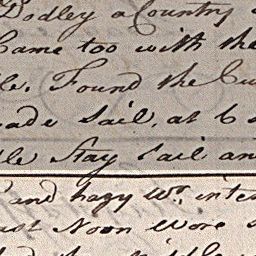 Dodley a Country
Came too with the
le. Found the Cu
ade Sail, at 6
le Stay Sail an
and hazy Wr. inte
Noon Wore